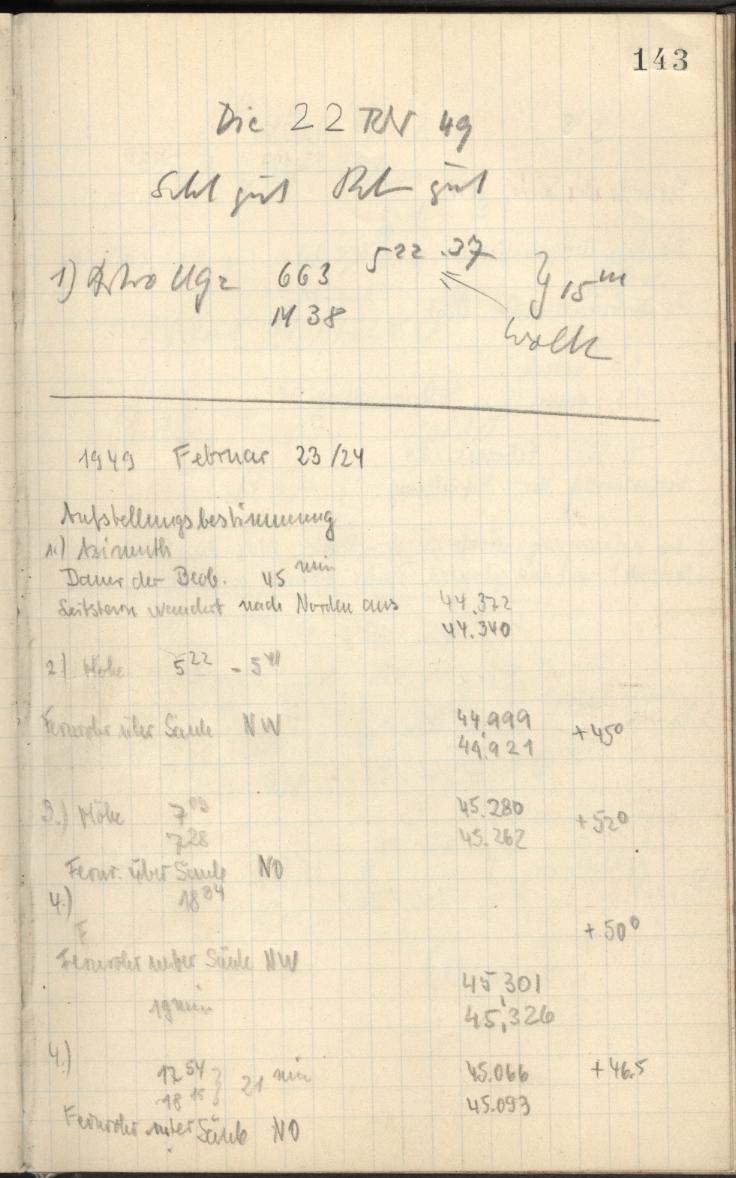 143
Die 22 Feb 49
gut gut
1) Astro Ugz 663 5 22 .37 } 15 m
M 38 Wolk
1949 Februar 23/24
Aufstellungsbestimmung
1.) Azimuth
Dauer der Beob. 45 min
Leitstern wandert nach Norden aus 44.372
44.340
2) Höhe 5 22 - 5 41
Fernrohr über Säule NW 44.999 +45°
44.921
3.) Höhe 7 09 45.280 +52°
7 28 45.262
Fernr. über Säule NO
4.) 18 34
F +50°
Fernrohr unter Säule NW
45,301
19 min 45,326
4.)
17 54 } 21 min 45.066 +46.5
18 15 45.093
Fernrohr unter Säule NO